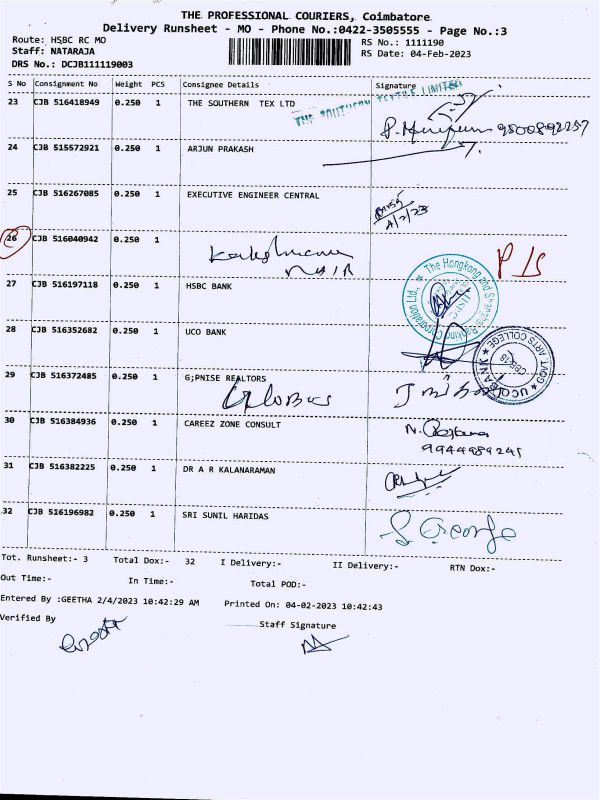 THE PROFESSIONAL COURIERS, Coimbatore
Delivery Runsheet - MO - Phone No.:0422-3505555 - Page No.:3
Route: HSBC RC MO
RS No.: 1111190
Staff: NATARAJA
RS Date: 04-Feb-2023
DRS No.: DCJB111119003
S No Consignment No Weight PCS Consignee Details Signature
THE SOUTHERN TEXTILE LIMITED
23 CJB 516418949 0.250 1 THE SOUTHERN TEX LTD
9500892257
24 CJB 515572921 0.250 1 ARJUN PRAKASH
25 CJB 516267085 0.250 1 EXECUTIVE ENGINEER CENTRAL
4/2/23
26 CJB 516040942 0.250 1
NAIR
27 CJB 516197118 0.250 1 HSBC BANK
The Hongkong and Shanghai Banking Corporation Ltd.,
28 CJB 516352682 0.250 1 UCO BANK
UCO BANK GOVT. ARTS COLLEGE
29 CJB 516372485 0.250 1 G;PNISE REALTORS
Globus
30 CJB 516384936 0.250 1 CAREEZ ZONE CONSULT
9944989241
31 CJB 516382225 0.250 1 DR A R KALANARAMAN
32 CJB 516196982 0.250 1 SRI SUNIL HARIDAS
S George
Tot. Runsheet:- 3 Total Dox:- 32 I Delivery:- II Delivery:- RTN Dox:-
Out Time:- In Time:- Total POD:-
Entered By :GEETHA 2/4/2023 10:42:29 AM Printed On: 04-02-2023 10:42:43
Verified By
Staff Signature